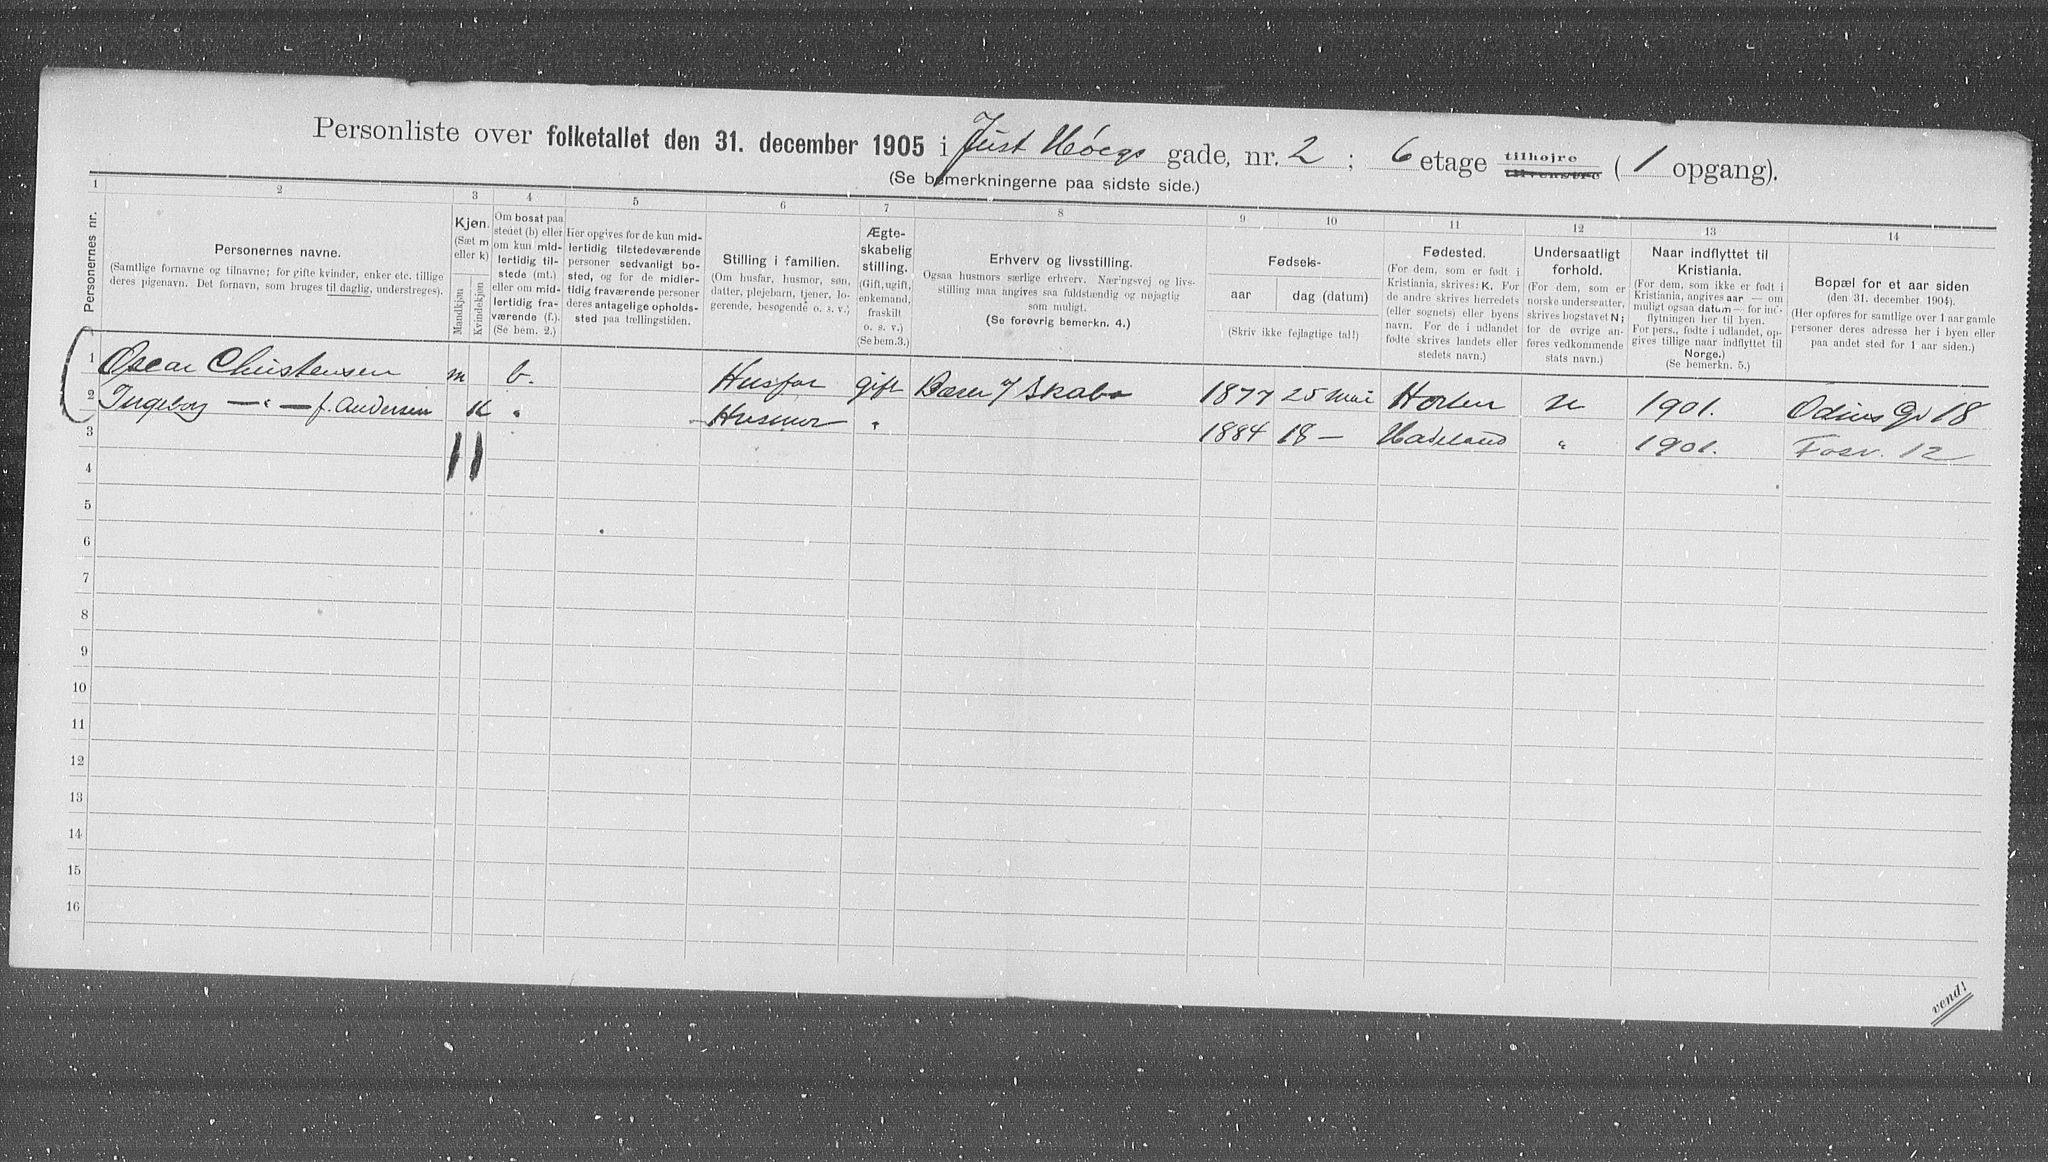 Personliste over folketallet den 31. december 1905 i Just Høegs gade, nr. 2 ; 6 etage tilhøjre tilvenstre ( 1 opgang).
(Se bemerkningerne paa sidste side.)
1 2 3 4 5 6 7 8 9 10 11 12 13 14
Personernes nr.
Personernes navne.
(Samtlige fornavne og tilnavne; for gifte kvinder, enker etc. tillige
deres pigenavn. Det fornavn, som bruges til daglig, understreges).
Kjøn.
(Sæt m
eller k)
Mandkjøn
Kvindekjøn
Om bosat paa
stedet (b) eller
om kun mid-
lertidig til-
stede (mt.)
eller om mid-
lertidig fra-
værende (f.).
(Se bem. 2.)
Her opgives for de kun mid-
lertidig tilstedeværende
personer sedvanligt bo-
sted, og for de midler-
tidig fraværende personer
deres antagelige opholds-
sted paa tællingstiden.
Stilling i familien.
(Om husfar, husmor, søn,
datter, plejebarn, tjener, lo-
gerende, besøgende o. s. v.)
Ægte-
skabelig
stilling.
(Gift, ugift,
enkemand,
fraskilt
o. s. v.)
(Se bem.3.)
Erhverv og livsstilling.
Ogsaa husmors særlige erhverv. Næringsvej og livs-
stilling maa angives saa fuldstændig og nøjagtig
som muligt.
(Se forøvrig bemerkn. 4.)
Fødsels-
aar dag (datum)
(Skriv ikke fejlagtige tal!)
Fødested.
(For dem, som er født i
Kristiania, skrives: K. For
de andre skrives herredets
(eller sognets) eller byens
navn. For de i udlandet
fødte skrives landets eller
stedets navn.)
Undersaatligt
forhold.
(For dem, som er
norske undersaatter,
skrives bogstavet N;
for de øvrige an-
føres vedkommende
stats navn.)
Naar indflyttet til
Kristiania.
(For dem, som ikke er født i
Kristiania, angives aar — om
muligt ogsaa datum — for ind-
flytningen her til byen.
For pers., fødte i udlandet, op-
gives tillige naar indflyttet til
Norge.)
(Se bemerkn. 5.)
Bopæl for et aar siden
(den 31. december 1904).
(Her opføres for samtlige over 1 aar gamle
personer deres adresse her i byen eller
paa andet sted for 1 aar siden.)
1 Oscar Christensen m b. Husfar gift 1877 25 mai Horten N 1901. Odins Gd 18
2 Ingeborg —"— f. Andersen K " Husmor " 1884 18 — Hadeland " 1901. Fosv. 12
3
4
5
6
7
8
9
10
11
12
13
14
15
16
vend!